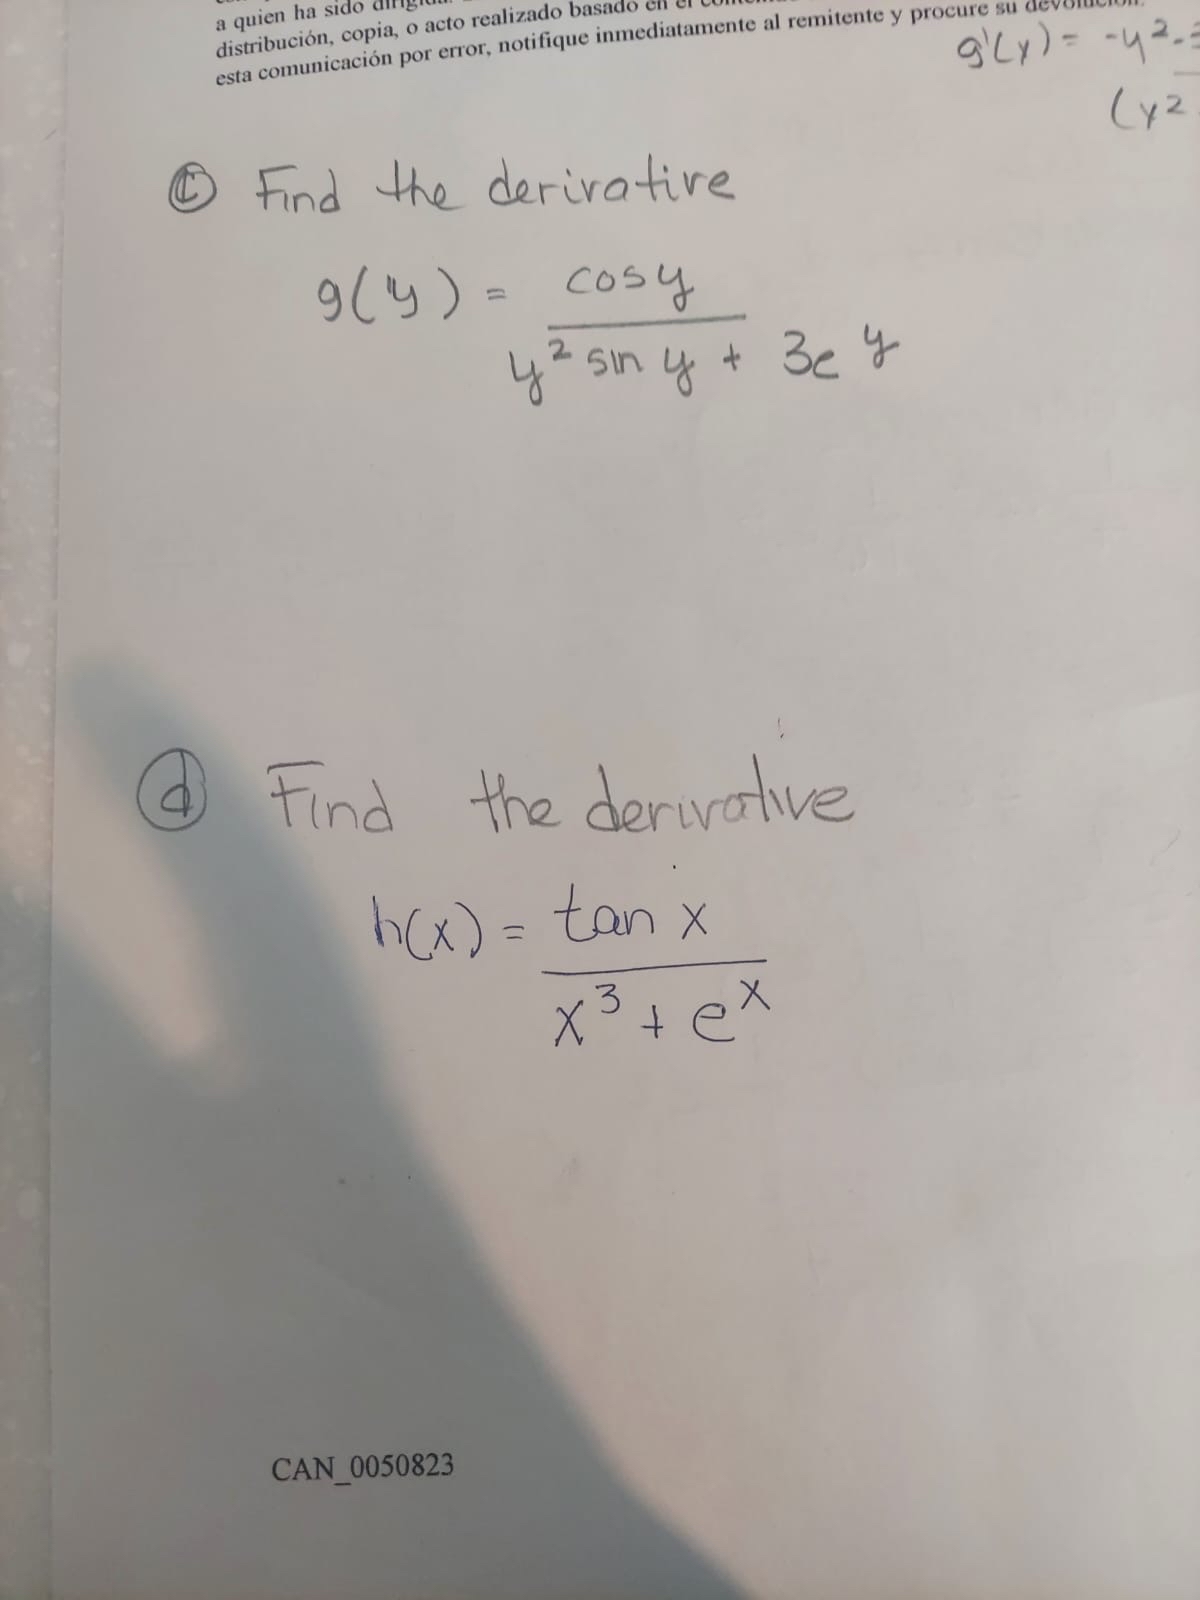 a quien ha sido
distribución, copia, o acto realizado basado en el
esta comunicación por error, notifique inmediatamente al remitente y procure su devolución.
g'(y) = -y²
(y²
ⓒ Find the derivative
g(y) = cos y
y² sin y + 3e^y
ⓓ Find the derivative
h(x) = tan x
x³ + e^x
CAN_0050823